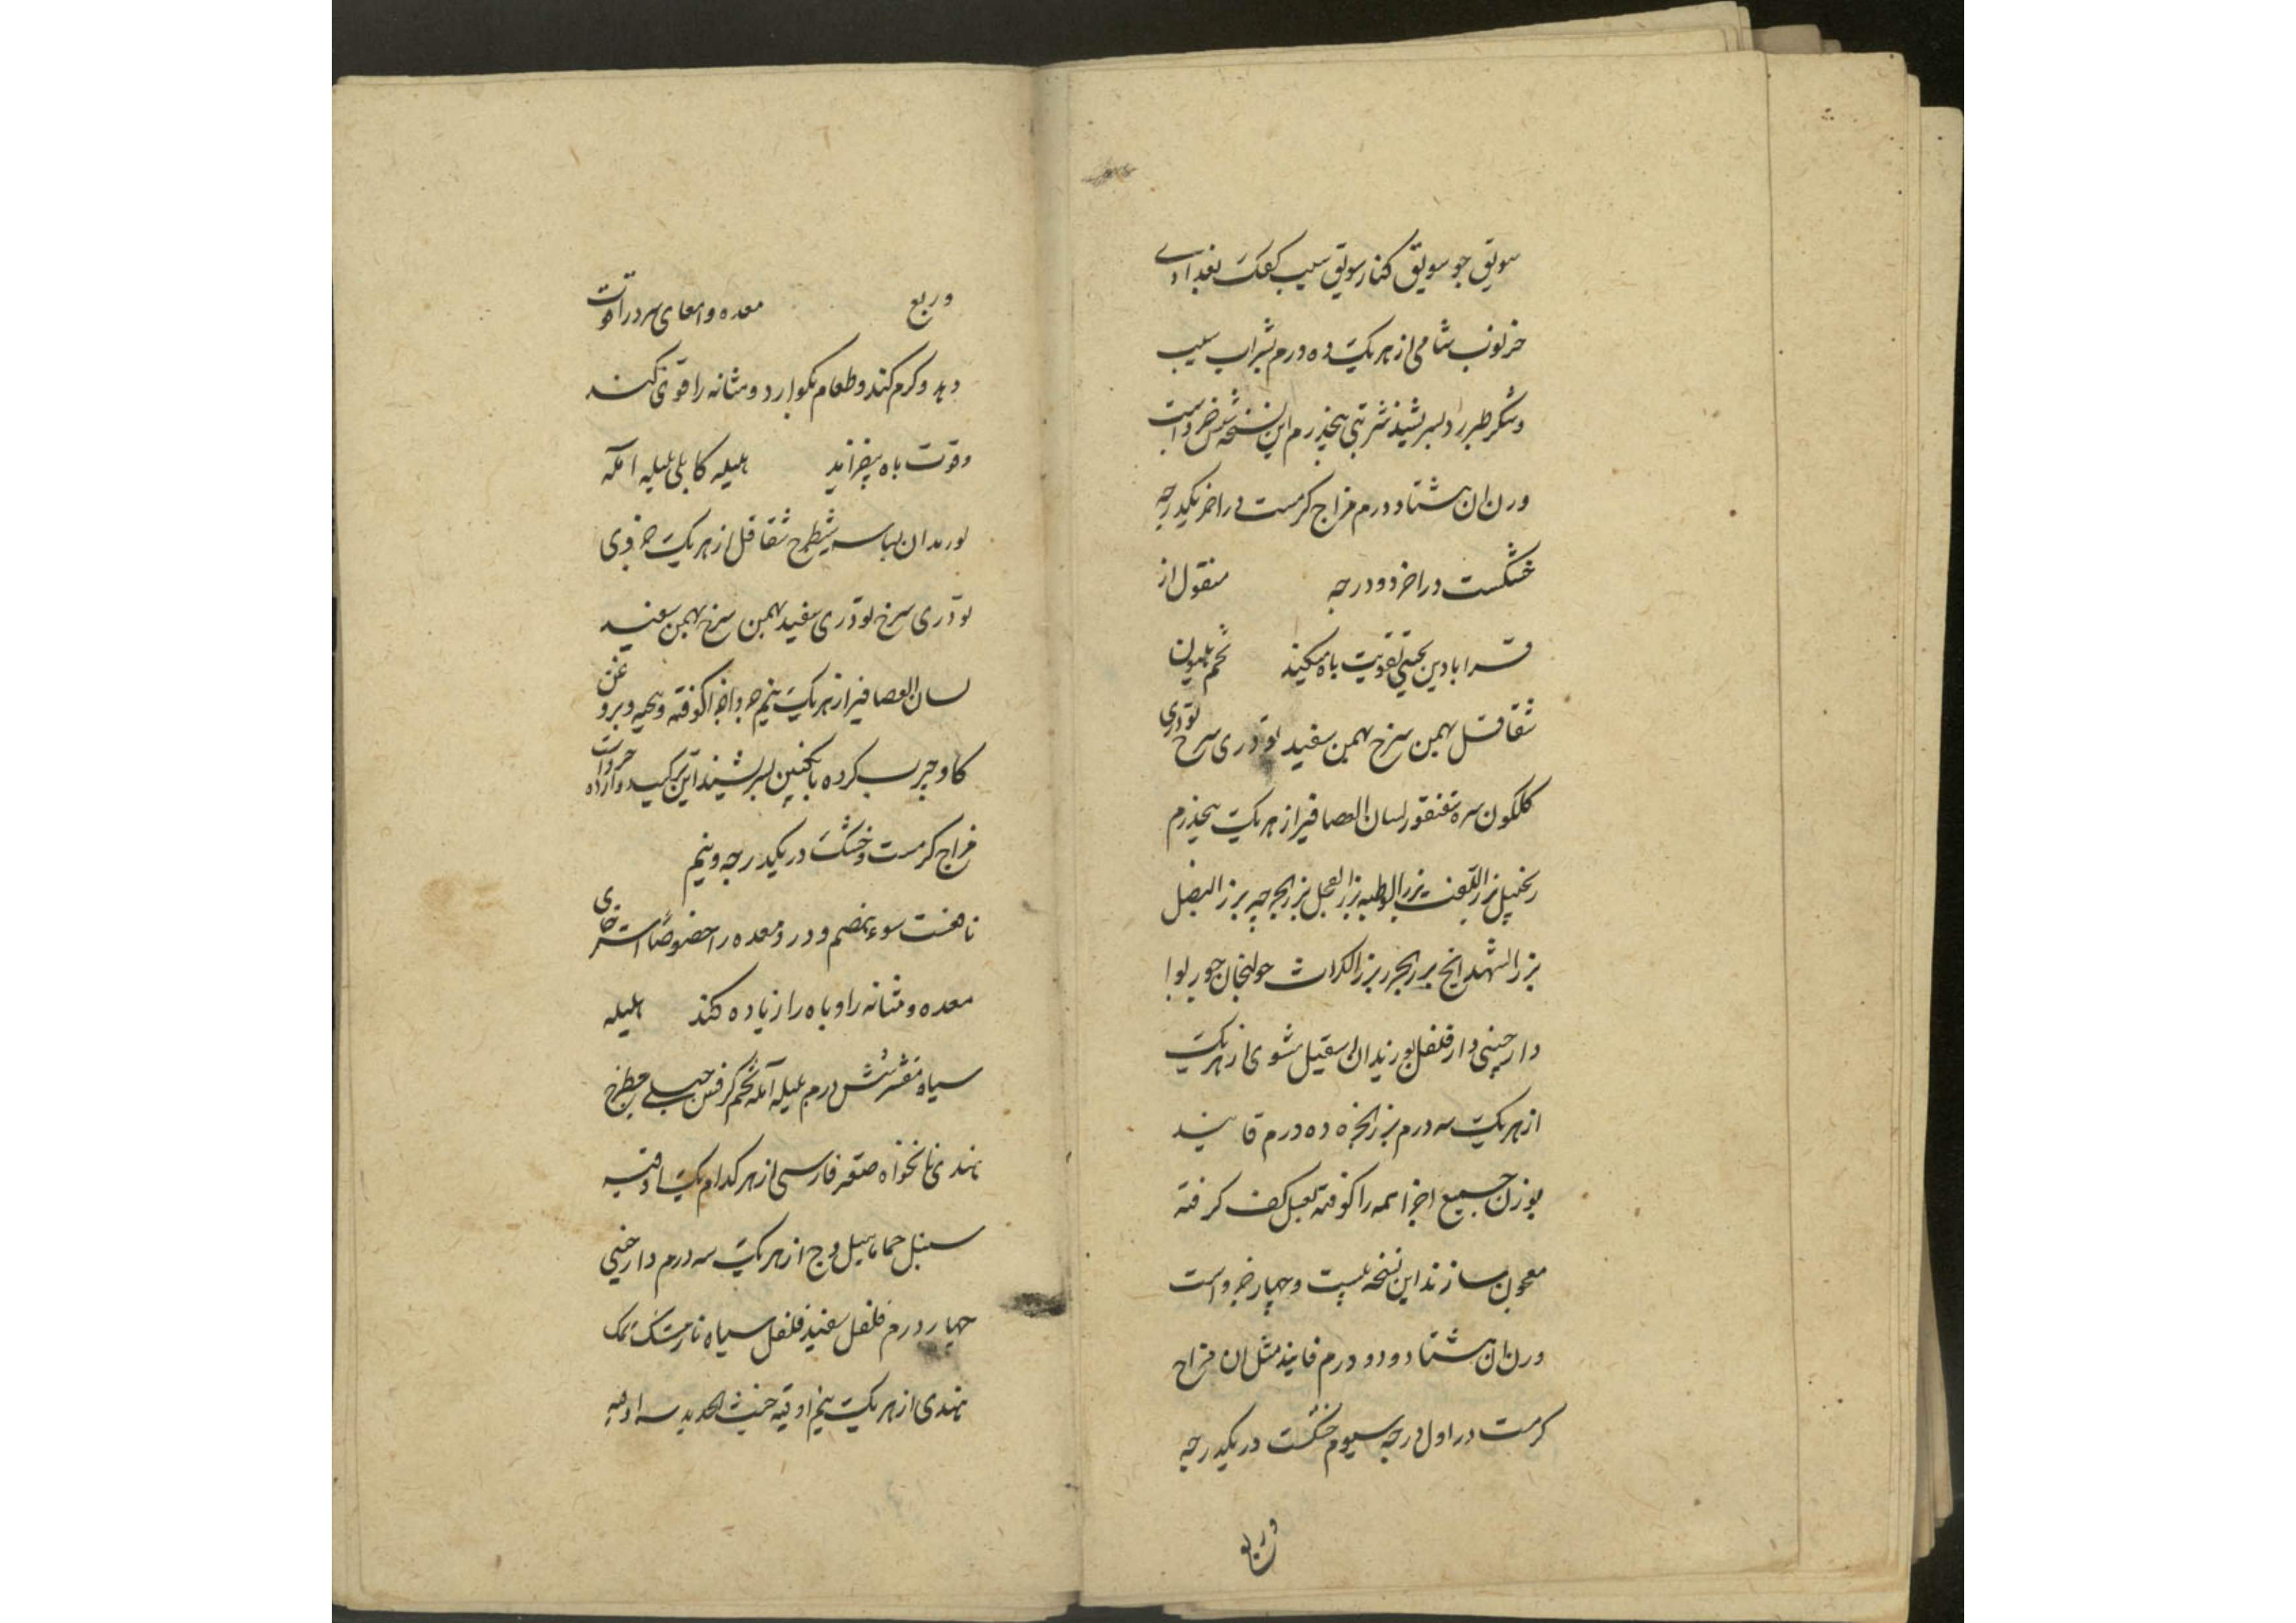 سویق جو سویق کنار سویق سیب کعک بغدادے
خرنوب شامی از هر یک ده درم بشراب سیب
و شکر طبرزد بسرشند شربتی پنجدرم این نسخه شش جزو است
وزن ان هشتاد درم مزاج کرمست در اخر یکدرجه
خشکست در اخر دو درجه منقول از
قرابادین تقویت باه میکند تخم هلیون
شقاقل بهمن سرخ بهمن سفید تودری سرخ تودری
کلکون سره سقنقور لسان العصافیر از هر یک پنجدرم
زنجبیل بزر اللفت بزر الرطبه بزر الفجل بزر الجرجیر بزر البصل
بزر الشهدانج بزر الجزر بزر الکراث خولنجان جوز بوا
دارچینی دارفلفل بوزیدان اسقیل مشوی از هر یک
از هر یک سه درم بزر انجره ده درم فانید
بوزن جمیع اجزا همه را کوفته بعسل کف کرفته
معجون سازند این نسخه بیست و چهار جزو است
وزن ان هشتاد و دو درم فانید مثل ان مزاج
کرمست در اول درجه سیوم خشکست در یکدرجه
و ربع
و ربع معده و امعای سرد را قوت
دهد و کرم کند و طعام بکوارد و مثانه را قوی کند
و قوت باه بیفزاید هلیله کابلی بلیله آمله
بوزیدان بسباسه شیطرج شقاقل از هر یک جزوی
تودری سرخ تودری سفید بهمن سرخ بهمن سفید
لسان العصافیر از هر یک نیم جزو اجزا کوفته و بیخته و بروغن
کاو چرب کرده بانکبین بسرشند این ترکیب دوازده جزو است
مزاج کرمست و خشک در یکدرجه و نیم
نافعست سوء هضم و درد معده را خصوصا استرخای
معده و مثانه را و باه را زیاده کند هلیله
سیاه مقشر شش درم بلیله آمله تخم کرفس جبلے شیطرج
هندی نانخواه صعتر فارسی از هر کدام یک اوقیه
سنبل حماما هیل وج از هر یک سه درم دارچینی
چهار درم فلفل سفید فلفل سیاه نارمشک نمک
هندی از هر یک نیم اوقیه خبث الحدید سه اوقیه